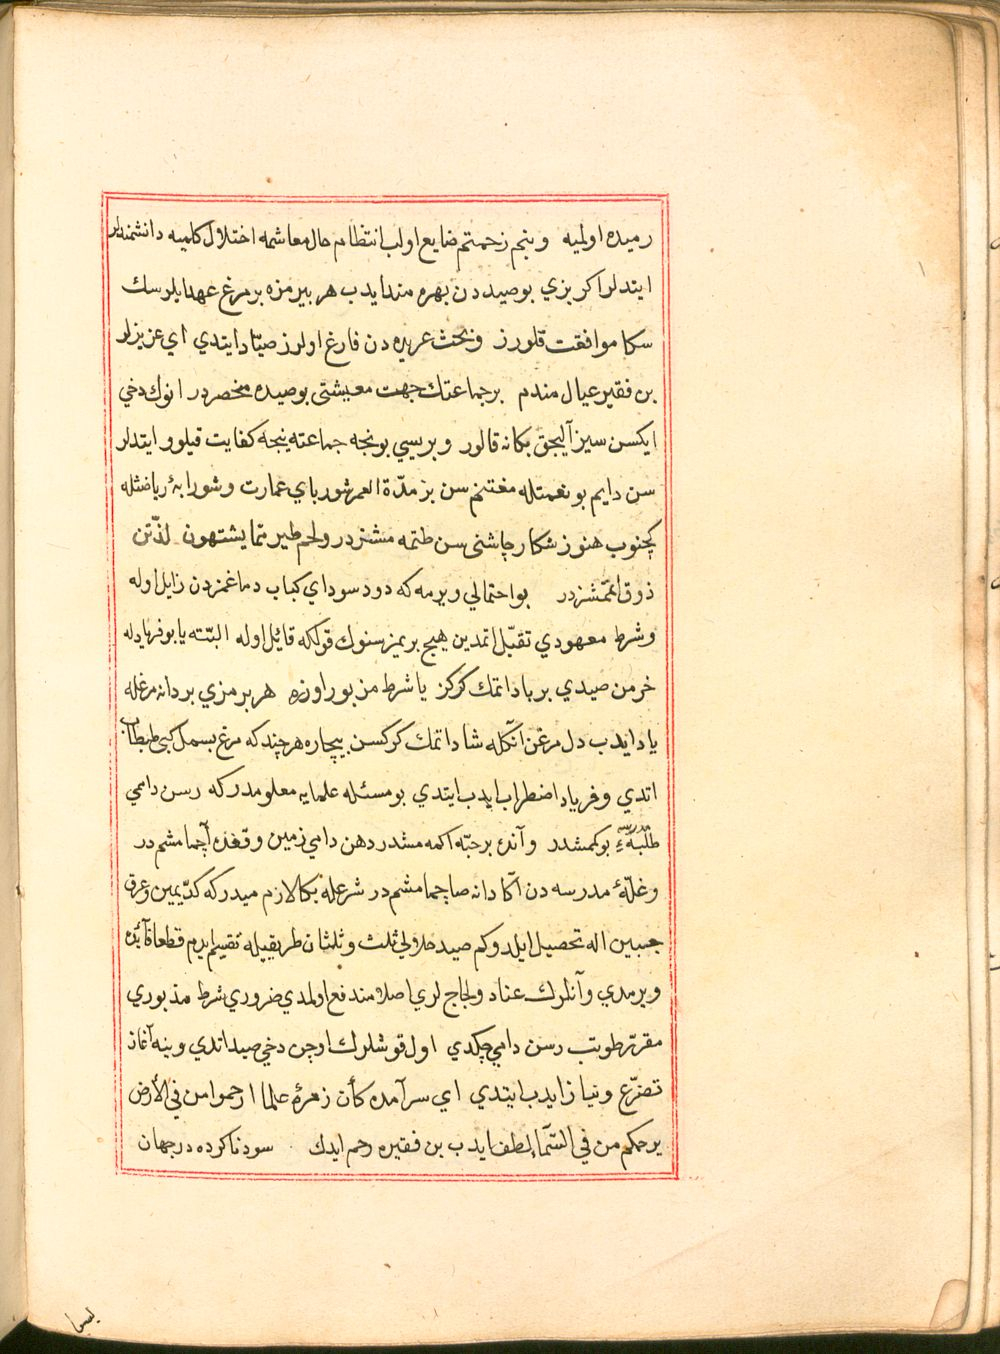 رميده اولميه وبنم زحمتم ضايع اولب انتظام حال معاشمه اختلال كلميه دانشمندلر
ايتدلر اكر بزي بو صيددن بهره مند ايدب هر بيرمزه بر مرغ عهد ايلرسك
سكا موافقت قلورز وبحث عربده دن فارغ اولرز صيّاد ايتدي اي عزيزلر
بن فقير عيال مندم بر جماعتك جهت معيشتى بو صيده مخصردر انوك دخي
ايكسن سيز آليجق بكا نه قالور و بريسي بونجه جماعته نيجه كفايت قيلور ايتدلر
سن دايم بو نعمتله مغتنم سن بز مدّة العمر شورباي عمارت وشورابۀ رياضتله
كچنوب هنوز شكار چاشنى سن طتمه مشزدر ولحم طير ممّا يشتهون لذّتن
ذوق ايتمّشزدر بو احتمالي ويرمه كه دود سوداي كباب دماغمزدن زايل اوله
وشرط معهودي تقبّل اتمدين هيچ بريمز سنوك قولكله قائل اوله البتّه يا بو فريادله
خرمن صيدي بر باد اتمك كركز يا شرط مزبور اوزره هر برمزي بر دانه مرغله
ياد ايدب دل مرغن آنكله شاد اتمك كركسن بيچاره هرچند كه مرغ بسمل كبى طبطاب
اتدي و فرياد اضطراب ايدب ايتدي بو مسئله علمايه معلومدر كه رسن دامي
طلبهٔ بوكمشدر و آنده بر حبّه اكمه مشدر دهن دامي زمين وقفده آچما مشم در
وغلّۀ مدرسه دن آكا دانه صاچما مشم در شرعله بكا لازم ميدر كه كدّ يمين وعرق
جبين اله تحصيل ايلدوكم صيد حلالي ثلث وثلثان طريقيله تقسيم ايدم قطعا فآئده
ويرمدي و آنلرك عناد ولجاج لري اصلا مندفع اولمدي ضروري شرط مذبوري
مقرّر طوتب رسن دامي چكدي اول قوشلرك اوچن دخي صيد اتدي وينه آغاز
تضرّع ونياز ايدب ايتدي اي سرآمده كان زمرۀ علما ارحموا من في الأرض
يرحمكم من في السّمآء لطف ايدب بن فقيره رحم ايدك سود ناكرده در جهان